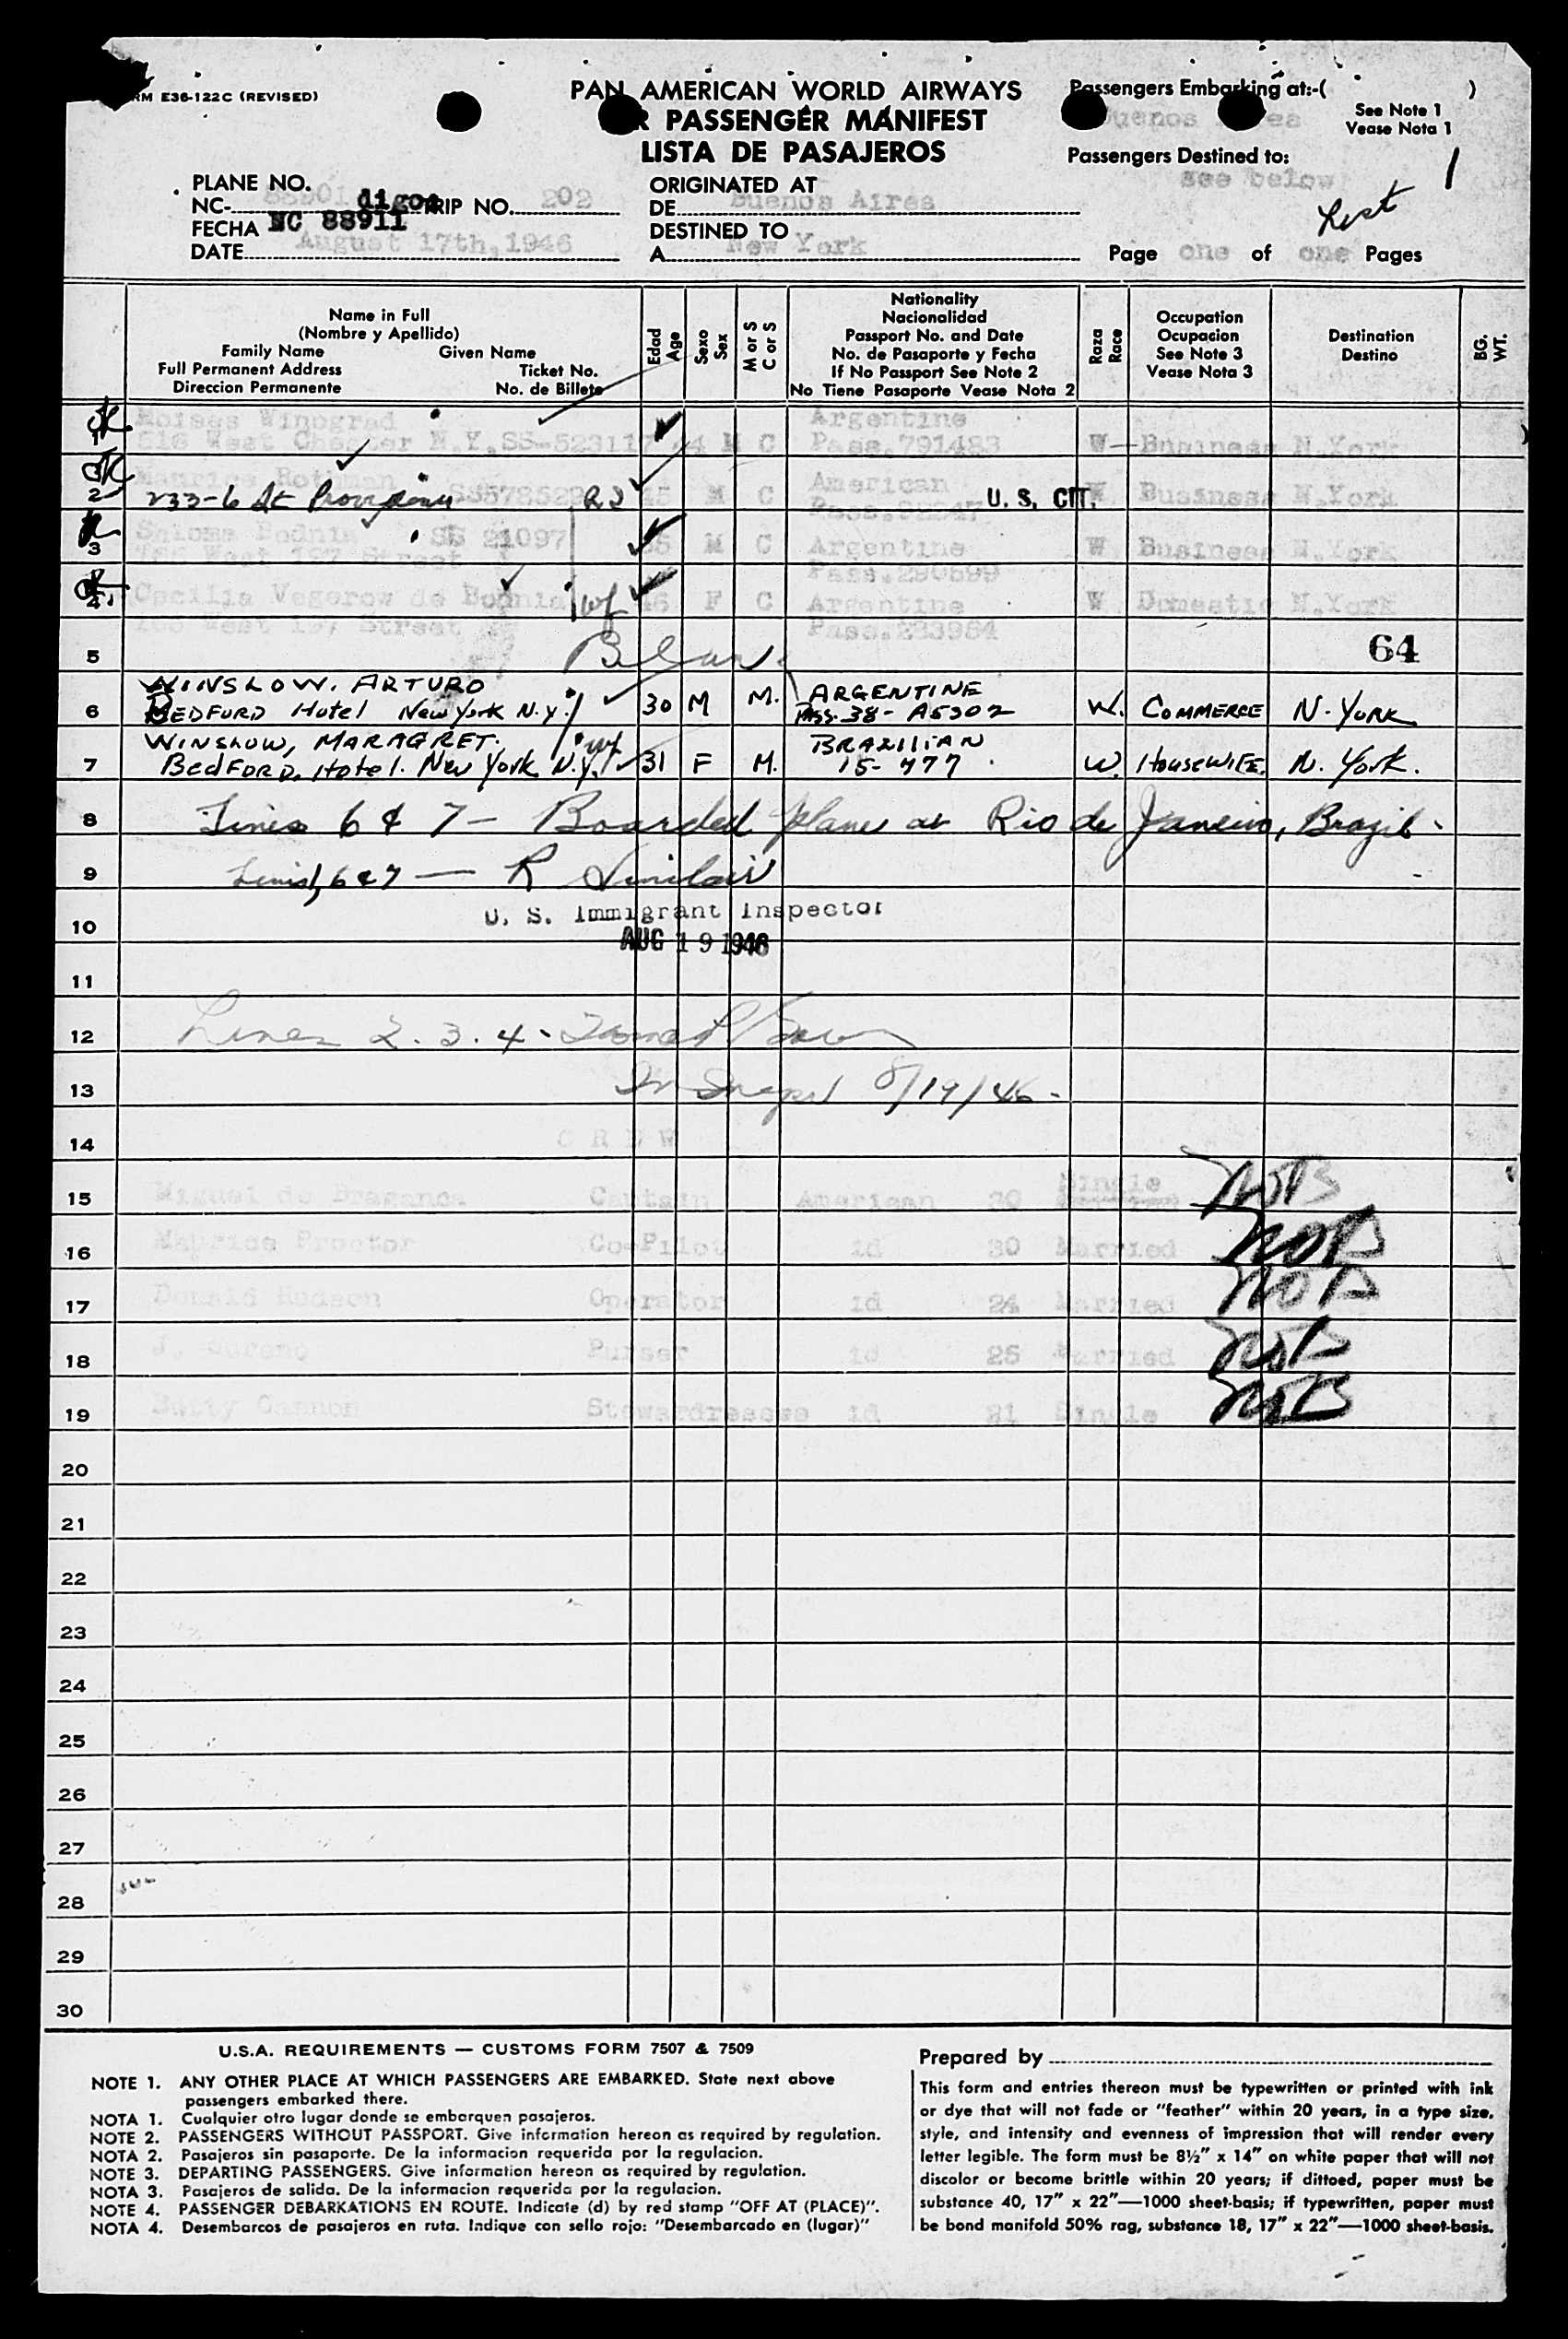 RM E36-122C (REVISED)
PAN AMERICAN WORLD AIRWAYS
R PASSENGER MANIFEST
LISTA DE PASAJEROS
Passengers Embarking at:-( )
Buenos Aires
See Note 1
Vease Nota 1
Passengers Destined to:
see below
1
List
PLANE NO.
NC- 88901 digo TRIP NO. 202
FECHA NC 88911
DATE August 17th, 1946
ORIGINATED AT
DE Buenos Aires
DESTINED TO
A New York
Page one of one Pages
Name in Full
(Nombre y Apellido)
Family Name Given Name
Full Permanent Address Ticket No.
Direccion Permanente No. de Billete
Edad
Age
Sexo
Sex
M or S
C or S
Nationality
Nacionalidad
Passport No. and Date
No. de Pasaporte y Fecha
If No Passport See Note 2
No Tiene Pasaporte Vease Nota 2
Raza
Race
Occupation
Ocupacion
See Note 3
Vease Nota 3
Destination
Destino
BG.
WT.
OK
1 Moises Winograd Argentine
616 West Chester N.Y. SS-523117 44 M C Pass. 791483 W Business N.York
OK
2 Maurice Rothman American
233-6 St SS578529 R S 45 M C Pass. U. S. CIT. W Business N.York
3 Shloma Bodnia SS 21097 M C Argentine W Business N.York
West 197 Street Pass. 290599
OK
4 Cecilia Vegerow de Bodnia wf 46 F C Argentine W Domestic N.York
West 197 Street Pass. 283984
5 64
6 WINSLOW. ARTURO ARGENTINE
BEDFORD Hotel New York N.Y. 30 M M. Pass. 38- A5302 W. COMMERCE N. YORK
7 WINSLOW, MARAGRET. wf BRAZILIAN
BEDFORD. Hotel. New York N.Y. 31 F M. 15-477 W. HOUSEWIFE. N. York.
8 Lines 6 & 7 - Boarded plane at Rio de Janeiro, Brazil.
9 Lines 1, 6 & 7 — R Sinclair
10 U. S. Immigrant Inspector
AUG 19 1946
11
12 Lines 2. 3. 4.
13 8/19/46.
14 CREW
15 Miguel de Braganca Captain American 30 Single NOB
16 Maurice Proctor Co-Pilot id 30 Married NOB
17 Donald Hudson Operator id 24 Married NOB
18 J. Purser id 25 Married NOB
19 Betty Cannon Stewardresses id 21 Single NOB
20
21
22
23
24
25
26
27
28
29
30
U.S.A. REQUIREMENTS — CUSTOMS FORM 7507 & 7509
NOTE 1. ANY OTHER PLACE AT WHICH PASSENGERS ARE EMBARKED. State next above
passengers embarked there.
NOTA 1. Cualquier otro lugar donde se embarquen pasajeros.
NOTE 2. PASSENGERS WITHOUT PASSPORT. Give information hereon as required by regulation.
NOTA 2. Pasajeros sin pasaporte. De la informacion requerida por la regulacion.
NOTE 3. DEPARTING PASSENGERS. Give information hereon as required by regulation.
NOTA 3. Pasajeros de salida. De la informacion requerida por la regulacion.
NOTE 4. PASSENGER DEBARKATIONS EN ROUTE. Indicate (d) by red stamp "OFF AT (PLACE)".
NOTA 4. Desembarcos de pasajeros en ruta. Indique con sello rojo: "Desembarcado en (lugar)"
Prepared by
This form and entries thereon must be typewritten or printed with ink
or dye that will not fade or "feather" within 20 years, in a type size,
style, and intensity and evenness of impression that will render every
letter legible. The form must be 8½" x 14" on white paper that will not
discolor or become brittle within 20 years; if dittoed, paper must be
substance 40, 17" x 22"—1000 sheet-basis; if typewritten, paper must
be bond manifold 50% rag, substance 18, 17" x 22"—1000 sheet-basis.